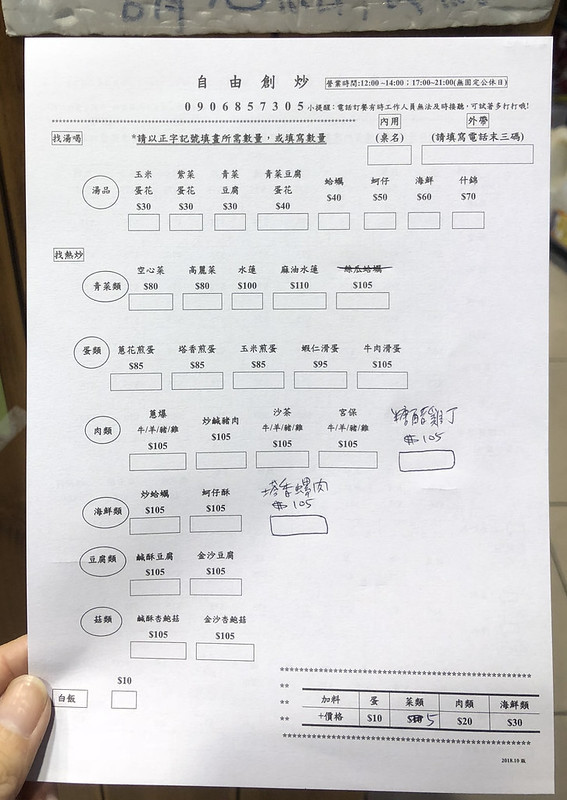 自由創炒 營業時間:12:00~14:00；17:00~21:00(無固定公休日)
0906857305 小提醒：電話訂餐有時工作人員無法及時接聽，可試著多打打哦!
找湯喝 *請以正字記號填畫所需數量，或填寫數量
內用 (桌名)
外帶 (請填寫電話末三碼)
湯品
玉米蛋花 $30
紫菜蛋花 $30
青菜豆腐 $30
青菜豆腐蛋花 $40
蛤蠣 $40
蚵仔 $50
海鮮 $60
什錦 $70
找熱炒
青菜類
空心菜 $80
高麗菜 $80
水蓮 $100
麻油水蓮 $110
絲瓜蛤蠣 $105
蛋類
蔥花煎蛋 $85
塔香煎蛋 $85
玉米煎蛋 $85
蝦仁滑蛋 $95
牛肉滑蛋 $105
肉類
蔥爆 牛/羊/豬/雞 $105
炒鹹豬肉 $105
沙茶 牛/羊/豬/雞 $105
宮保 牛/羊/豬/雞 $105
糖醋雞丁 $105
海鮮類
炒蛤蠣 $105
蚵仔酥 $105
塔香螺肉 $105
豆腐類
鹹酥豆腐 $105
金沙豆腐 $105
菇類
鹹酥杏鮑菇 $105
金沙杏鮑菇 $105
白飯 $10
加料 蛋 菜類 肉類 海鮮類
+價格 $10 5 $20 $30
2018.10 版